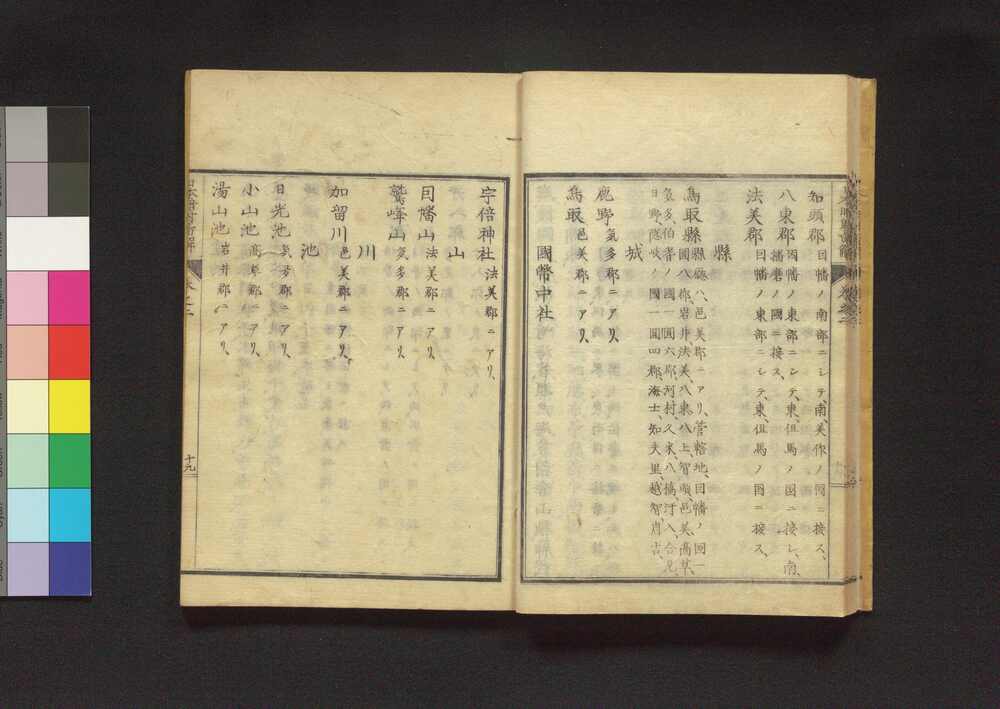 知頭郡 因幡ノ南部ニシテ、南、美作ノ國ニ接ス、
八東郡 因幡ノ東部ニシテ、東、但馬ノ國ニ接シ、南、
播磨ノ國ニ接ス、
法美郡 因幡ノ東部ニシテ、東、但馬ノ國ニ接ス、
縣
鳥取縣 縣廳ハ、邑美郡ニアリ、管轄地、因幡ノ國一
圓八郡、岩井、法美、八東、八上、智頭、邑美、高草、
氣多、伯耆ノ國一圓六郡、河村、久米、八橋、汗入、會見、
日野、隱岐ノ國一圓四郡、海士、知夫里、越智、周吉、
城
鹿野 氣多郡ニアリ、
鳥取 邑美郡ニアリ、
國幣中社
宇倍神社 法美郡ニアリ、
山
因幡山 法美郡ニアリ、
鷲峰山 氣多郡ニアリ、
川
加留川 邑美郡ニアリ、
池
日光池 氣多郡ニアリ、
小山池 高草郡ニアリ、
湯山池 岩井郡ニアリ、
十九